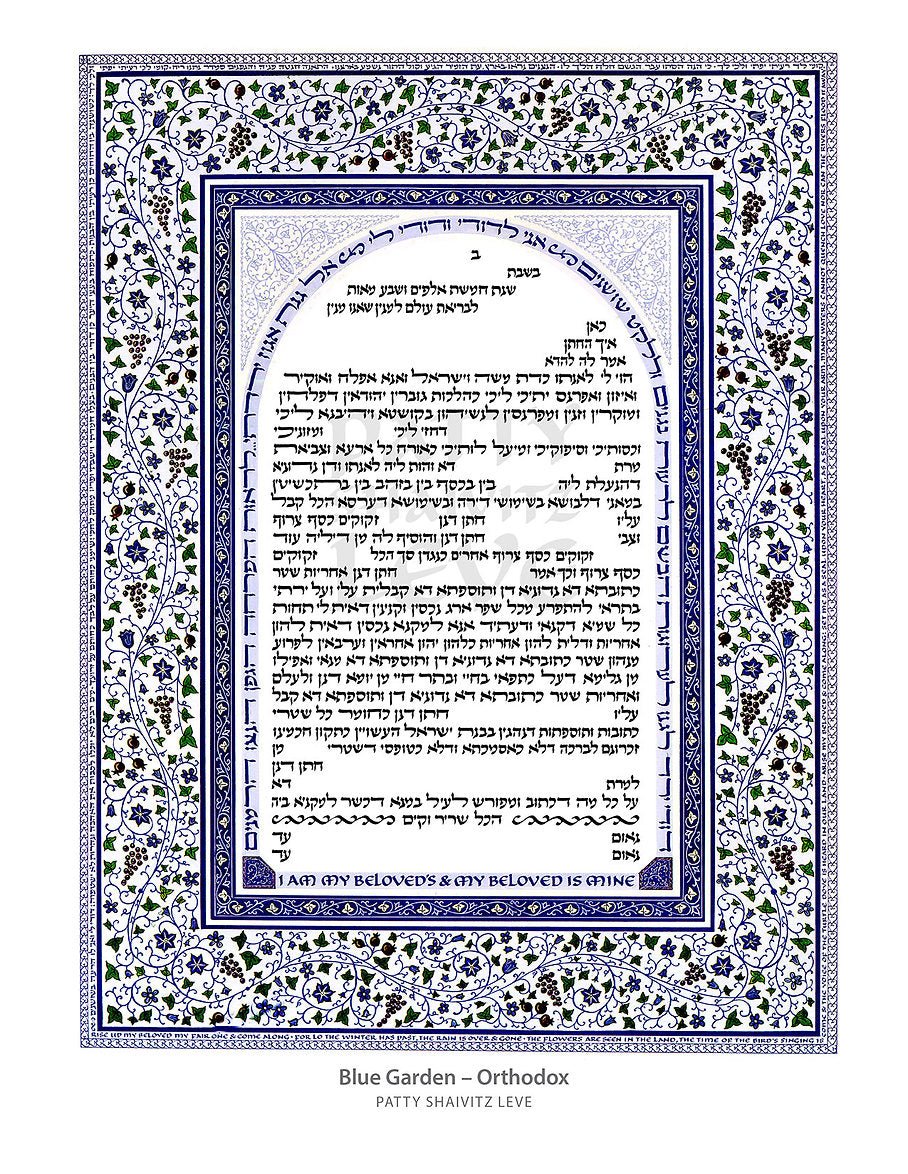 אני לדודי ודודי לי
ב
בשבת
שנת חמשת אלפים ושבע מאות
לבריאת עולם למנין שאנו מנין
כאן
איך החתן
אמר לה להדא
הוי לי לאנתו כדת משה וישראל ואנא אפלח ואוקיר
ואיזון ואפרנס יתיכי ליכי כהלכות גוברין יהודאין דפלחין
ומוקרין וזנין ומפרנסין לנשיהון בקושטא ויהיבנא ליכי
דחזי ליכי ומזוניכי
וכסותיכי וסיפוקיכי ומיעל לותיכי כאורח כל ארעא וצביאת
מרת דא והות ליה לאנתו ודן נדוניא
דהנעלת ליה בין בכסף בין בזהב בין בתכשיטין
במאני דלבושא בשימושי דירה ובשימושא דערסא הכל קבל
עליו חתן דנן זקוקים כסף צרוף
וצבי חתן דנן והוסיף לה מן דיליה עוד
זקוקים כסף צרוף אחרים כנגדן סך הכל זקוקים
כסף צרוף וכך אמר חתן דנן אחריות שטר
כתובתא דא נדוניא דן ותוספתא דא קבלית עלי ועל ירתי
בתראי להתפרע מכל שפר ארג נכסין וקנינין דאית לי תחות
כל שמיא דקנאי ודעתיד אנא למקנא נכסין דאית להון
אחריות ודלית להון אחריות כלהון יהון אחראין וערבאין לפרוע
מנהון שטר כתובתא דא נדוניא דן ותוספתא דא מנאי ואפילו
מן גלימא דעל כתפאי בחיי ובתר חיי מן יומא דנן ולעלם
ואחריות שטר כתובתא דא נדוניא דן ותוספתא דא קבל
עליו חתן דנן כחומר כל שטרי
כתובות ותוספתות דנהגין בבנות ישראל העשויין כתקון חכמינו
זכרונם לברכה דלא כאסמכתא ודלא כטופסי דשטרי מן
חתן דנן
למרת דא
על כל מה דכתוב ומפורש לעיל במנא דכשר למקניא ביה
הכל שריר וקים
נאום עד
נאום עד
I AM MY BELOVED'S & MY BELOVED IS MINE
RISE UP MY BELOVED MY FAIR ONE & COME ALONG · FOR LO THE WINTER HAS PAST, THE RAIN IS OVER & GONE · THE FLOWERS ARE SEEN IN THE LAND, THE TIME OF THE BIRD'S SINGING IS
COME & THE VOICE OF THE TURTLE DOVE IS HEARD IN OUR LAND · ARISE MY BELOVED & COME ALONG · SET ME AS A SEAL UPON YOUR HEART, AS A SEAL UPON YOUR ARM · MANY WATERS CANNOT QUENCH LOVE NOR CAN THE RIVERS FLOOD IT AWAY
PATTY
Shaivitz
LEVE
Blue Garden – Orthodox
PATTY SHAIVITZ LEVE